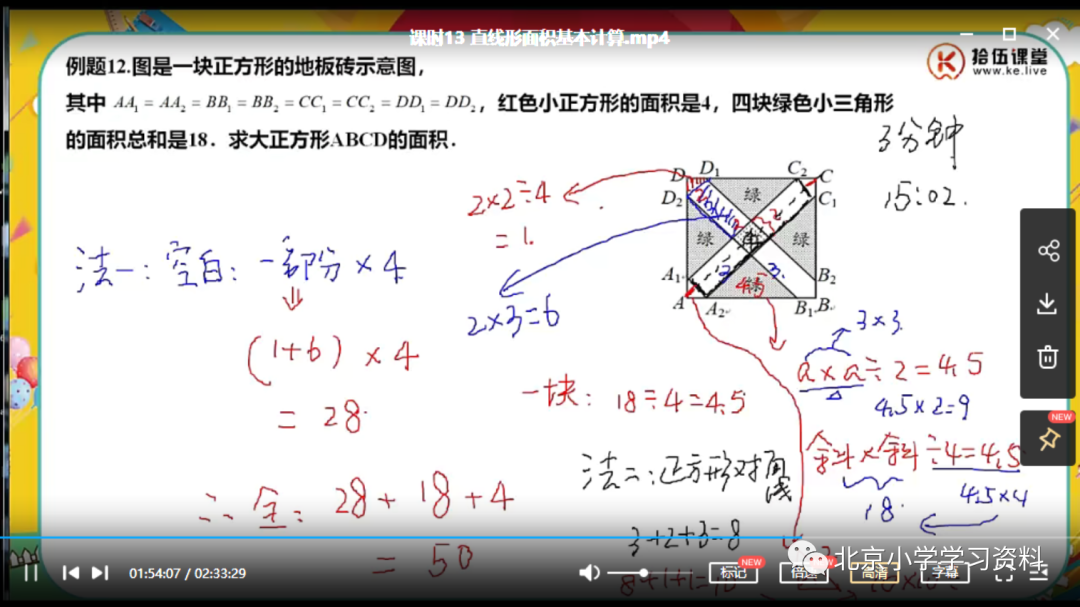 课时13 直线形面积基本计算.mp4
拾伍课堂
www.ke.live
例题12.图是一块正方形的地板砖示意图，
其中 AA₁ = AA₂ = BB₁ = BB₂ = CC₁ = CC₂ = DD₁ = DD₂，红色小正方形的面积是4，四块绿色小三角形
的面积总和是18．求大正方形ABCD的面积．
3分钟
15:02.
D D₁ C₂ C
D₂ 绿 C₁
绿 绿
A₁ B₂
A A₂ B₁ B
2×2÷4
= 1.
2×3=6
法一：空白：一部份×4
(1+6)×4
= 28.
∴全：28+18+4
= 50
一块：18÷4=4.5
3×3.
a×a÷2=4.5
4.5×2=9
斜×斜÷4=4.5
18.
4.5×4
法二：正方形对角线
3+2+3=8
8+1+1=10
01:54:07 / 02:33:29
标记
NEW
倍速
NEW
高清
字幕
NEW
北京小学学习资料